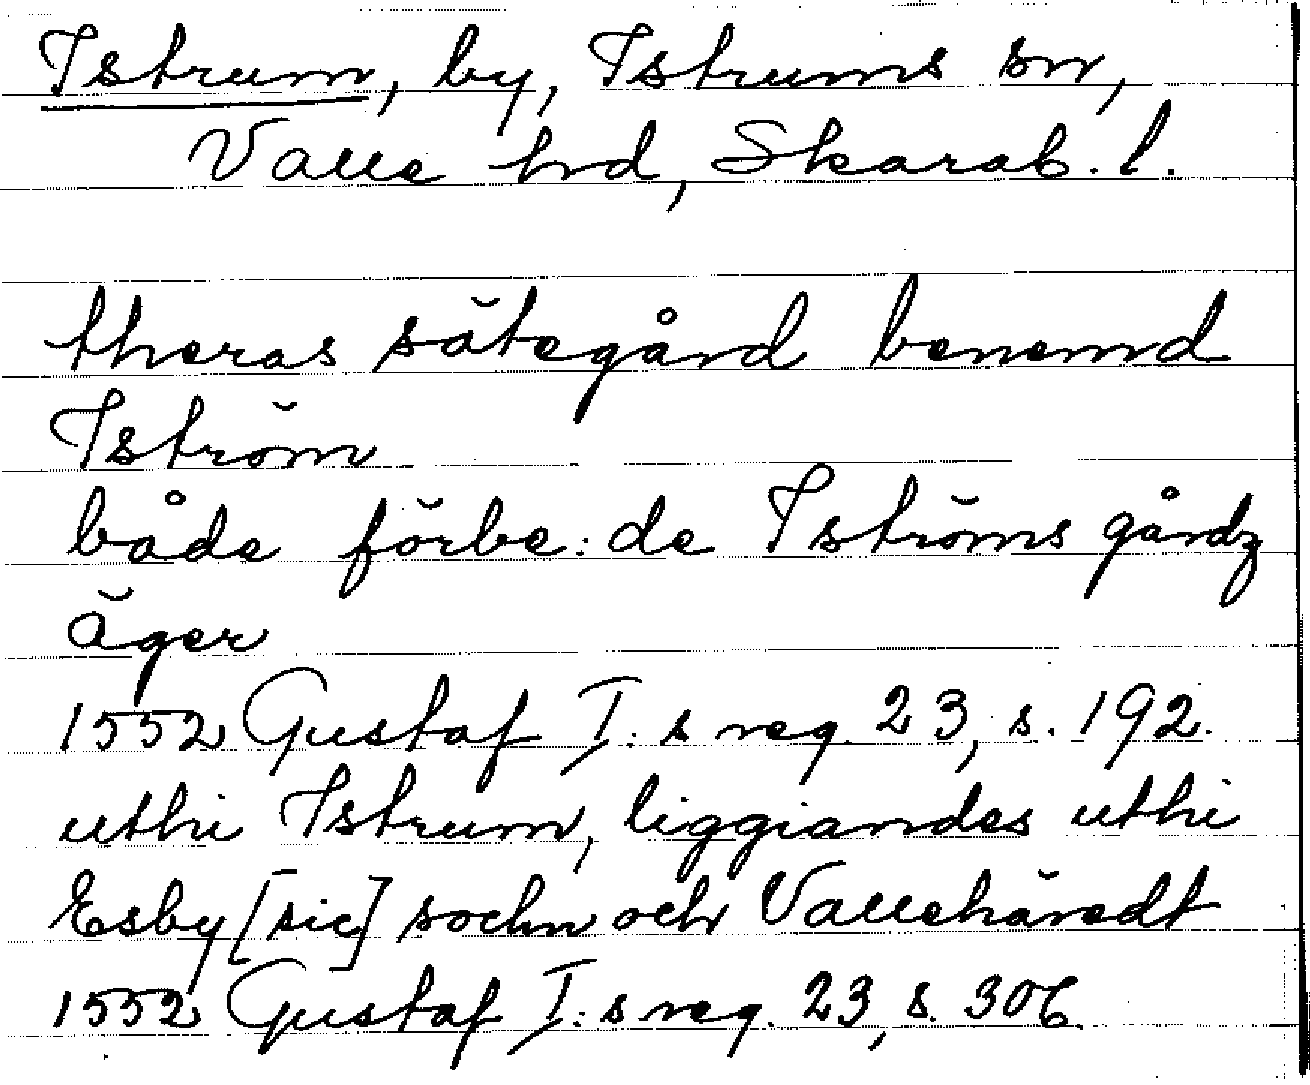 Istrum, by, Istrums sn,
Valle hd, Skarab. l.
theras sätegård benemd
Iström
både förbe: de Iströms gårdz
äger
1552 Gustaf I: s reg 23, s. 192.
uthi Istrum, liggiandes uthi
Esby [sic] sochn och Vallehäredt
1552 Gustaf I: s reg. 23, s. 306